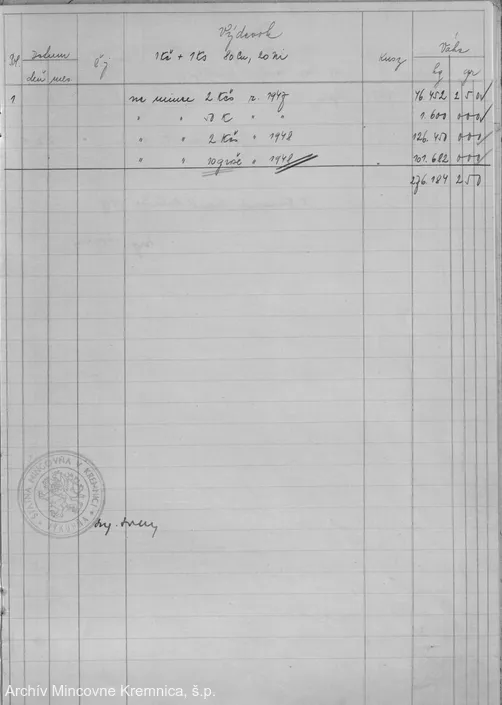 Výdavok
Čsl. Dátum Čj 1 Kčs + 1 Ks 80 Cu, 20 Ni Kusy Váha
deň mes. kg gr
1 na mince 2 Kčs r. 1947 76.452 250
" " 50 h " " 1.600 000
" " 2 Kčs " 1948 126.450 000
" " 10 " 1948 101.682 000
276.184 250
ŠTÁTNA MINCOVŇA V KREMNICI
Archív Mincovne Kremnica, š.p.